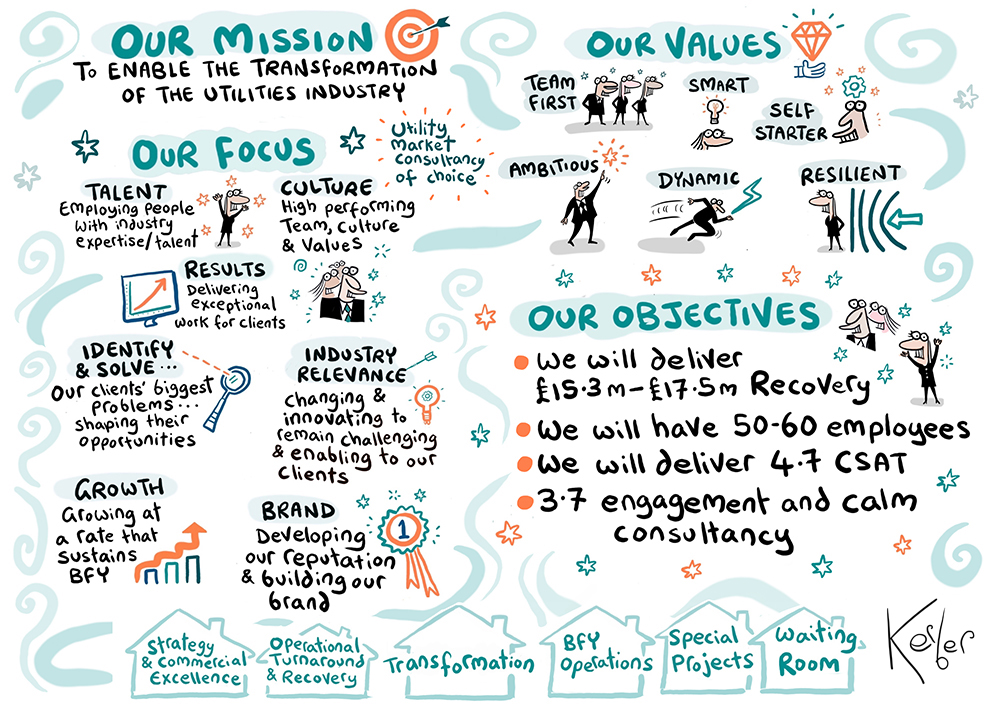 OUR MISSION
TO ENABLE THE TRANSFORMATION
OF THE UTILITIES INDUSTRY
OUR FOCUS
Utility
Market
Consultancy
of choice
TALENT
Employing people
with industry
expertise/talent
CULTURE
High performing
Team, Culture
& Values
RESULTS
Delivering
exceptional
work for clients
IDENTIFY
& SOLVE...
Our clients' biggest
problems..
shaping their
opportunities
INDUSTRY
RELEVANCE
changing &
innovating to
remain challenging
& enabling to our
clients
GROWTH
Growing at
a rate that
sustains
BFY
BRAND
Developing
our reputation
& building our
brand
1
OUR VALUES
TEAM
FIRST
SMART
SELF
STARTER
AMBITIOUS
DYNAMIC
RESILIENT
OUR OBJECTIVES
• We will deliver
£15.3m-£17.5m Recovery
• We will have 50-60 employees
• We will deliver 4.7 CSAT
• 3.7 engagement and calm
consultancy
Strategy
& Commercial
Excellence
Operational
Turnaround
& Recovery
Transformation
BFY
Operations
Special
Projects
Waiting
Room
Kerber